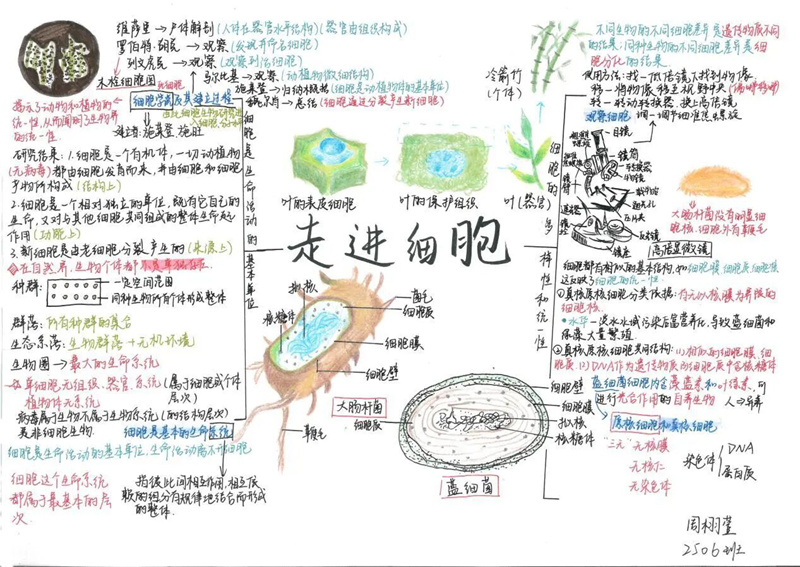 维萨里→尸体解剖(人体在器官水平结构)(器官由组织构成)
罗伯特·胡克→观察(发现并命名细胞)
列文虎克→观察(观察到活细胞)
马尔比基→观察(动植物微细结构)
施莱登→归纳概括(细胞是动植物体的基本单位)
魏尔肖→总结(细胞通过分裂产生新细胞)
木栓细胞图
死细胞
细胞学说及其建立过程
揭示了动物和植物的
统一性,从而阐明了生物界
的统一性。
建立者:施莱登、施旺
研究结果:1.细胞是一个有机体,一切动植物
(无病毒)都由细胞发育而来,并由细胞和细胞
产物所构成(结构上)
2.细胞是一个相对独立的单位,既有它自己的
生命,又对与其他细胞共同组成的整体生命起
作用(功能上)
3.新细胞是由老细胞分裂产生的(来源上)
在自然界,生物个体都不是单独存在
种群:
一定空间范围
同种生物所有个体形成整体
群落:所有种群的集合
生态系统:生物群落+无机环境
生物圈→最大的生命系统
单细胞无组织、器官、系统(属于细胞或个体
层次)
植物体无系统
病毒属于生物不属于生命系统(的结构层次)
是非细胞生物
细胞是基本的生命系统
细胞是生命活动的基本单位,生命活动离不开细胞
细胞这个生命系统
都属于最基本的层
次
指彼此间相互作用、相互依
赖的组分有规律地结合而形成
的整体.
细胞是生命活动的基本单位
走进细胞
叶的表皮细胞
叶的保护组织
叶(器官)
冷箭竹
(个体)
拟核
核糖体
菌毛
细胞质
细胞膜
细胞壁
鞭毛
大肠杆菌
细胞质
细胞壁
细胞膜
拟核
核糖体
蓝细菌
细胞的多样性和统一性
不同生物的不同细胞差异是遗传物质不同
的结果;同种生物的不同细胞差异是细
胞分化的结果
使用方法:找—低倍镜下找到物像
移—将物像移至视野中央(偏哪移哪)
转—转动转换器,换上高倍镜
调—调节细准焦螺旋
观察细胞
目镜
镜筒
转换器
物镜
载物台
通光孔
压片夹
反光镜
镜座
镜臂
高倍显微镜
大肠杆菌没有明显细
胞核,细胞外有鞭毛
细胞都有相似的基本结构,如细胞膜、细胞质、细胞核
这反映了细胞的统一性.
①真核原核细胞分类依据:有无以核膜为界限的
细胞核.
水华—淡水水域污染后富营养化,导致蓝细菌和
绿藻大量繁殖
②真核、原核细胞共同结构:(1)相似的细胞膜、细胞
质;(2)DNA作为遗传物质;(3)细胞质中含核糖体
蓝细菌细胞内含藻蓝素和叶绿素,可
进行光合作用的自养生物 人→异养
原核细胞和真核细胞
“三无”无核膜
无核仁
无染色体
染色体
DNA
蛋白质
周栩莹
2506班